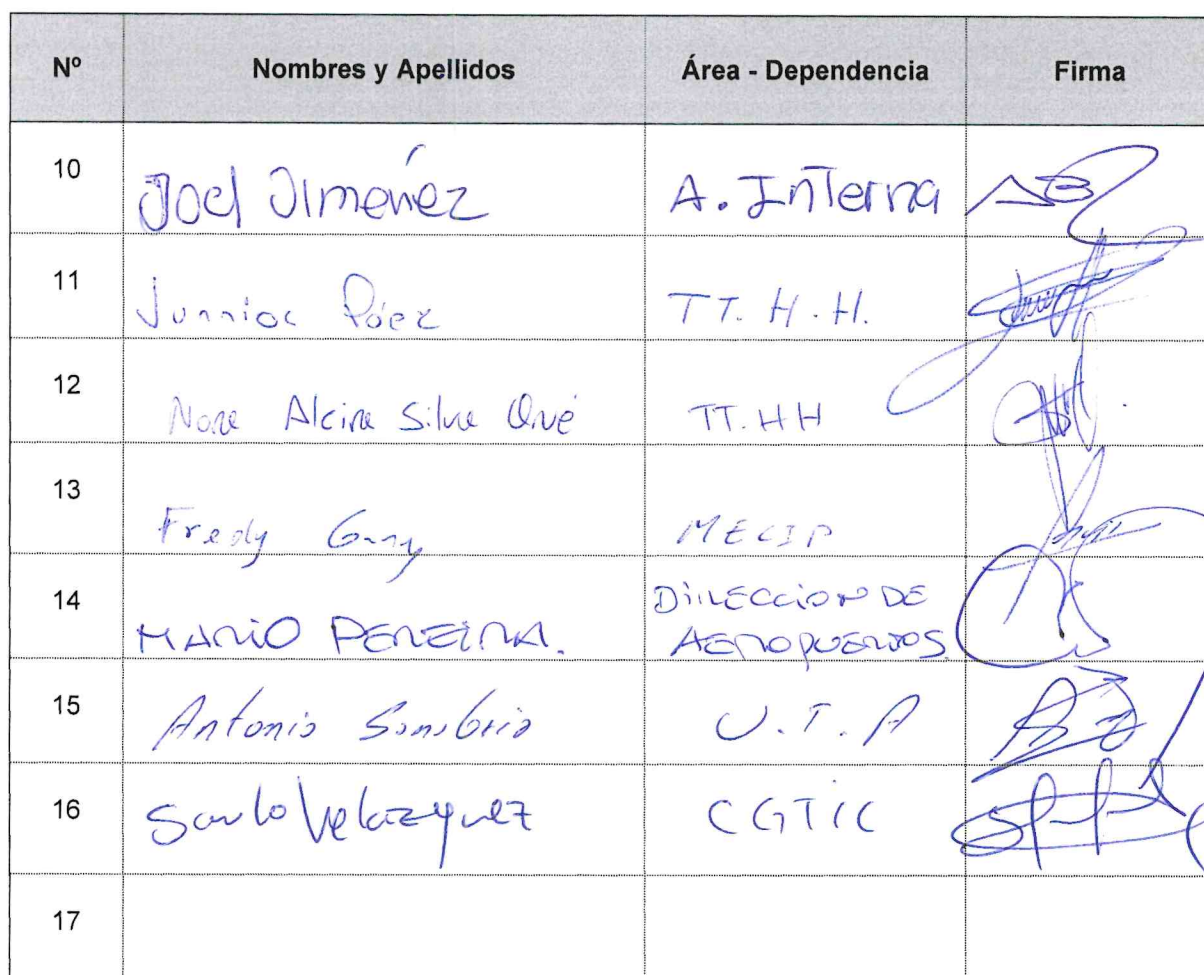 Nº Nombres y Apellidos Área - Dependencia Firma
10 Joel Jimenéz A. Interna
11 Junnior Páez TT. H. H.
12 Nora Alcira Silva TT. HH
13 Fredy MECIP
14 MARIO PEREIRA. DIRECCION DE
AEROPUERTOS.
15 Antonio U.T.A
16 Saulo Velazquez CGTIC
17